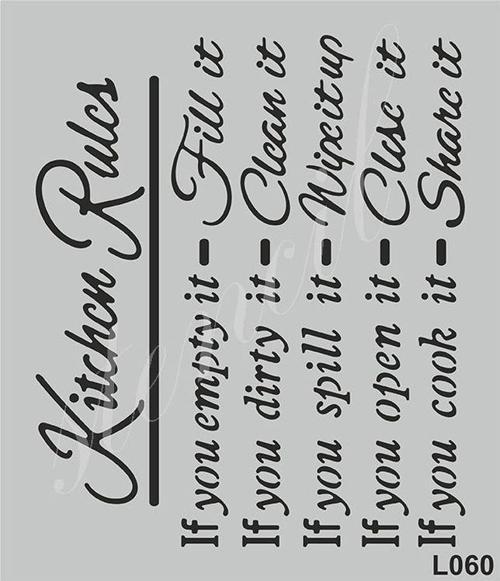 Kitchen Rules
If you empty it - Fill it
If you dirty it - Clean it
If you spill it - Wipe it up
If you open it - Close it
If you cook it - Share it
L060
stencil